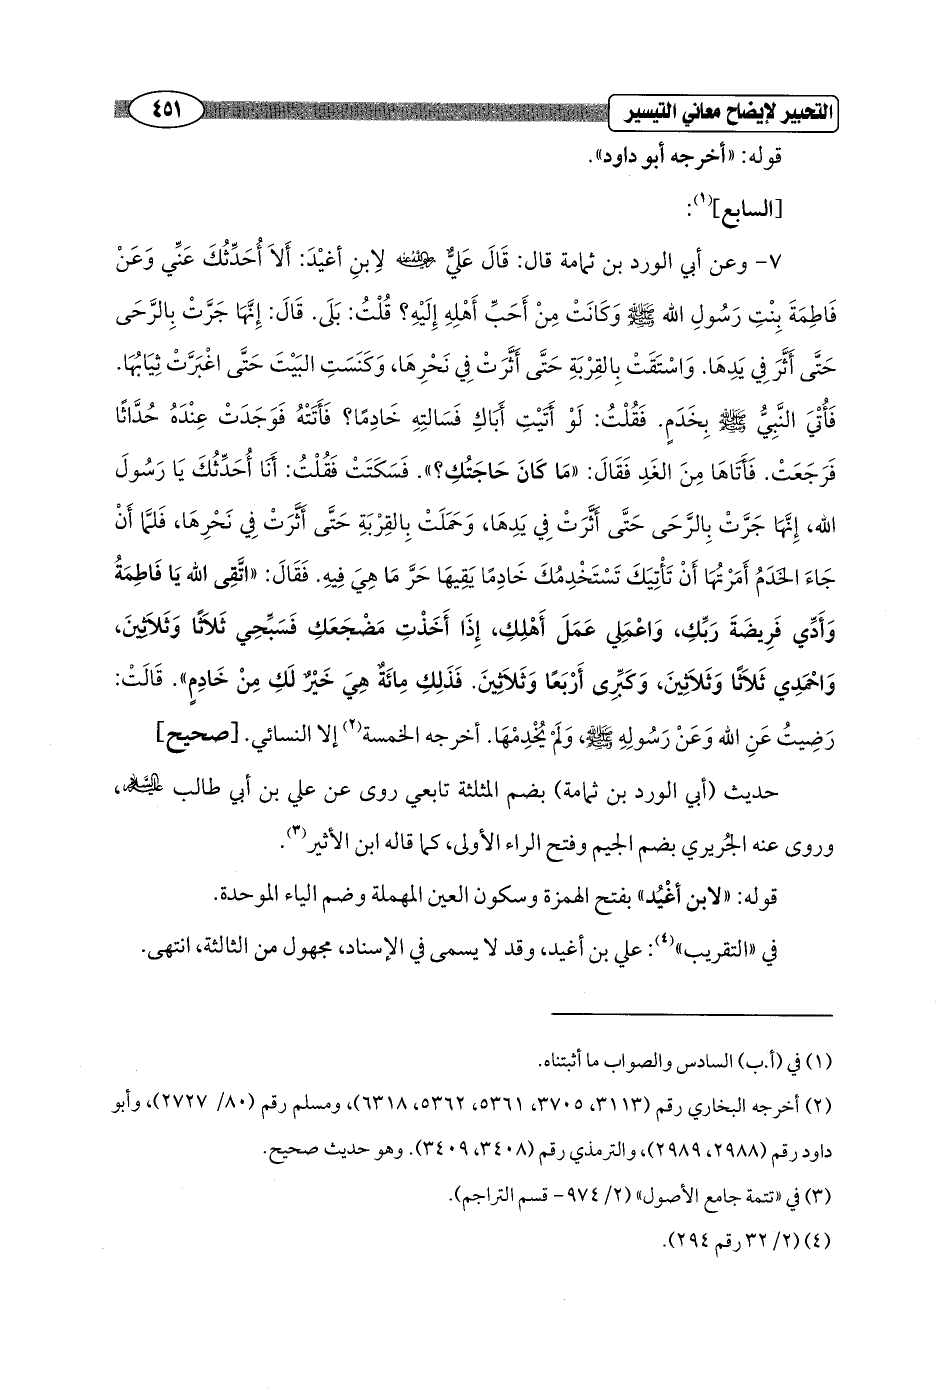 التحبير لإيضاح معاني التيسير ٤٥١
قوله: «أخرجه أبو داود».
[السابع](١):
٧- وعن أبي الورد بن ثمامة قال: قَالَ عَلِيٌّ رضي الله عنه لِابنِ أغيَدَ: أَلاَ أُحَدِّثُكَ عَنِّي وَعَنْ
فَاطِمَةَ بِنْتِ رَسُولِ الله ﷺ وَكَانَتْ مِنْ أَحَبِّ أَهْلِهِ إِلَيْهِ؟ قُلْتُ: بَلَى. قَالَ: إِنَّهَا جَرَّتْ بِالرَّحَى
حَتَّى أَثَّرَ فِي يَدِهَا. وَاسْتَقَتْ بِالقِرْبَةِ حَتَّى أَثَّرَتْ فِي نَحْرِهَا، وَكَنَسَتِ البَيْتَ حَتَّى اغْبَرَّتْ ثِيَابُهَا.
فَأُتِيَ النَّبِيُّ ﷺ بِخَدَمٍ. فَقُلْتُ: لَوْ أَتَيْتِ أَبَاكِ فَسَالتِهِ خَادِمًا؟ فَأَتَتْهُ فَوَجَدَتْ عِنْدَهُ حُدَّاثًا
فَرَجَعَتْ. فَأَتَاهَا مِنَ الغَدِ فَقَالَ: «مَا كَانَ حَاجَتُكِ؟». فَسَكَتَتْ فَقُلْتُ: أَنَا أُحَدِّثُكَ يَا رَسُولَ
الله، إِنَّهَا جَرَّتْ بِالرَّحَى حَتَّى أَثَّرَتْ فِي يَدِهَا، وَحَمَلَتْ بِالقِرْبَةِ حَتَّى أَثَّرَتْ فِي نَحْرِهَا، فَلَمَّا أَنْ
جَاءَ الخَدَمُ أَمَرْتُهَا أَنْ تَأْتِيَكَ تَسْتَخْدِمُكَ خَادِمًا يَقِيهَا حَرَّ مَا هِيَ فِيهِ. فَقَالَ: «اتَّقِى الله يَا فَاطِمَةُ
وَأَدِّي فَرِيضَةَ رَبِّكِ، وَاعْمَلِي عَمَلَ أَهْلِكِ، إِذَا أَخَذْتِ مَضْجَعَكِ فَسَبِّحِي ثَلَاثًا وَثَلاَثِينَ،
وَاحْمَدِي ثَلَاثًا وَثَلاَثِينَ، وَكَبِّرِى أَرْبَعًا وَثَلاَثِينَ. فَذَلِكِ مِائَةٌ هِيَ خَيْرٌ لَكِ مِنْ خَادِمٍ». قَالَتْ:
رَضِيتُ عَنِ الله وَعَنْ رَسُولِهِ ﷺ، وَلَمْ يُخْدِمْهَا. أخرجه الخمسة(٢) إلا النسائي. [صحيح]
حديث (أبي الورد بن ثمامة) بضم المثلثة تابعي روى عن علي بن أبي طالب عليه السلام،
وروى عنه الجُريري بضم الجيم وفتح الراء الأولى، كما قاله ابن الأثير(٣).
قوله: «لابن أغْيُد» بفتح الهمزة وسكون العين المهملة وضم الياء الموحدة.
في «التقريب»(٤): علي بن أغيد، وقد لا يسمى في الإسناد، مجهول من الثالثة، انتهى.
(١) في (أ.ب) السادس والصواب ما أثبتناه.
(٢) أخرجه البخاري رقم (٣١١٣، ٣٧٠٥، ٥٣٦١، ٥٣٦٢، ٦٣١٨)، ومسلم رقم (٨٠/ ٢٧٢٧)، وأبو
داود رقم (٢٩٨٨، ٢٩٨٩)، والترمذي رقم (٣٤٠٨، ٣٤٠٩). وهو حديث صحيح.
(٣) في «تتمة جامع الأصول» (٢/ ٩٧٤- قسم التراجم).
(٤) (٢/ ٣٢ رقم ٢٩٤).